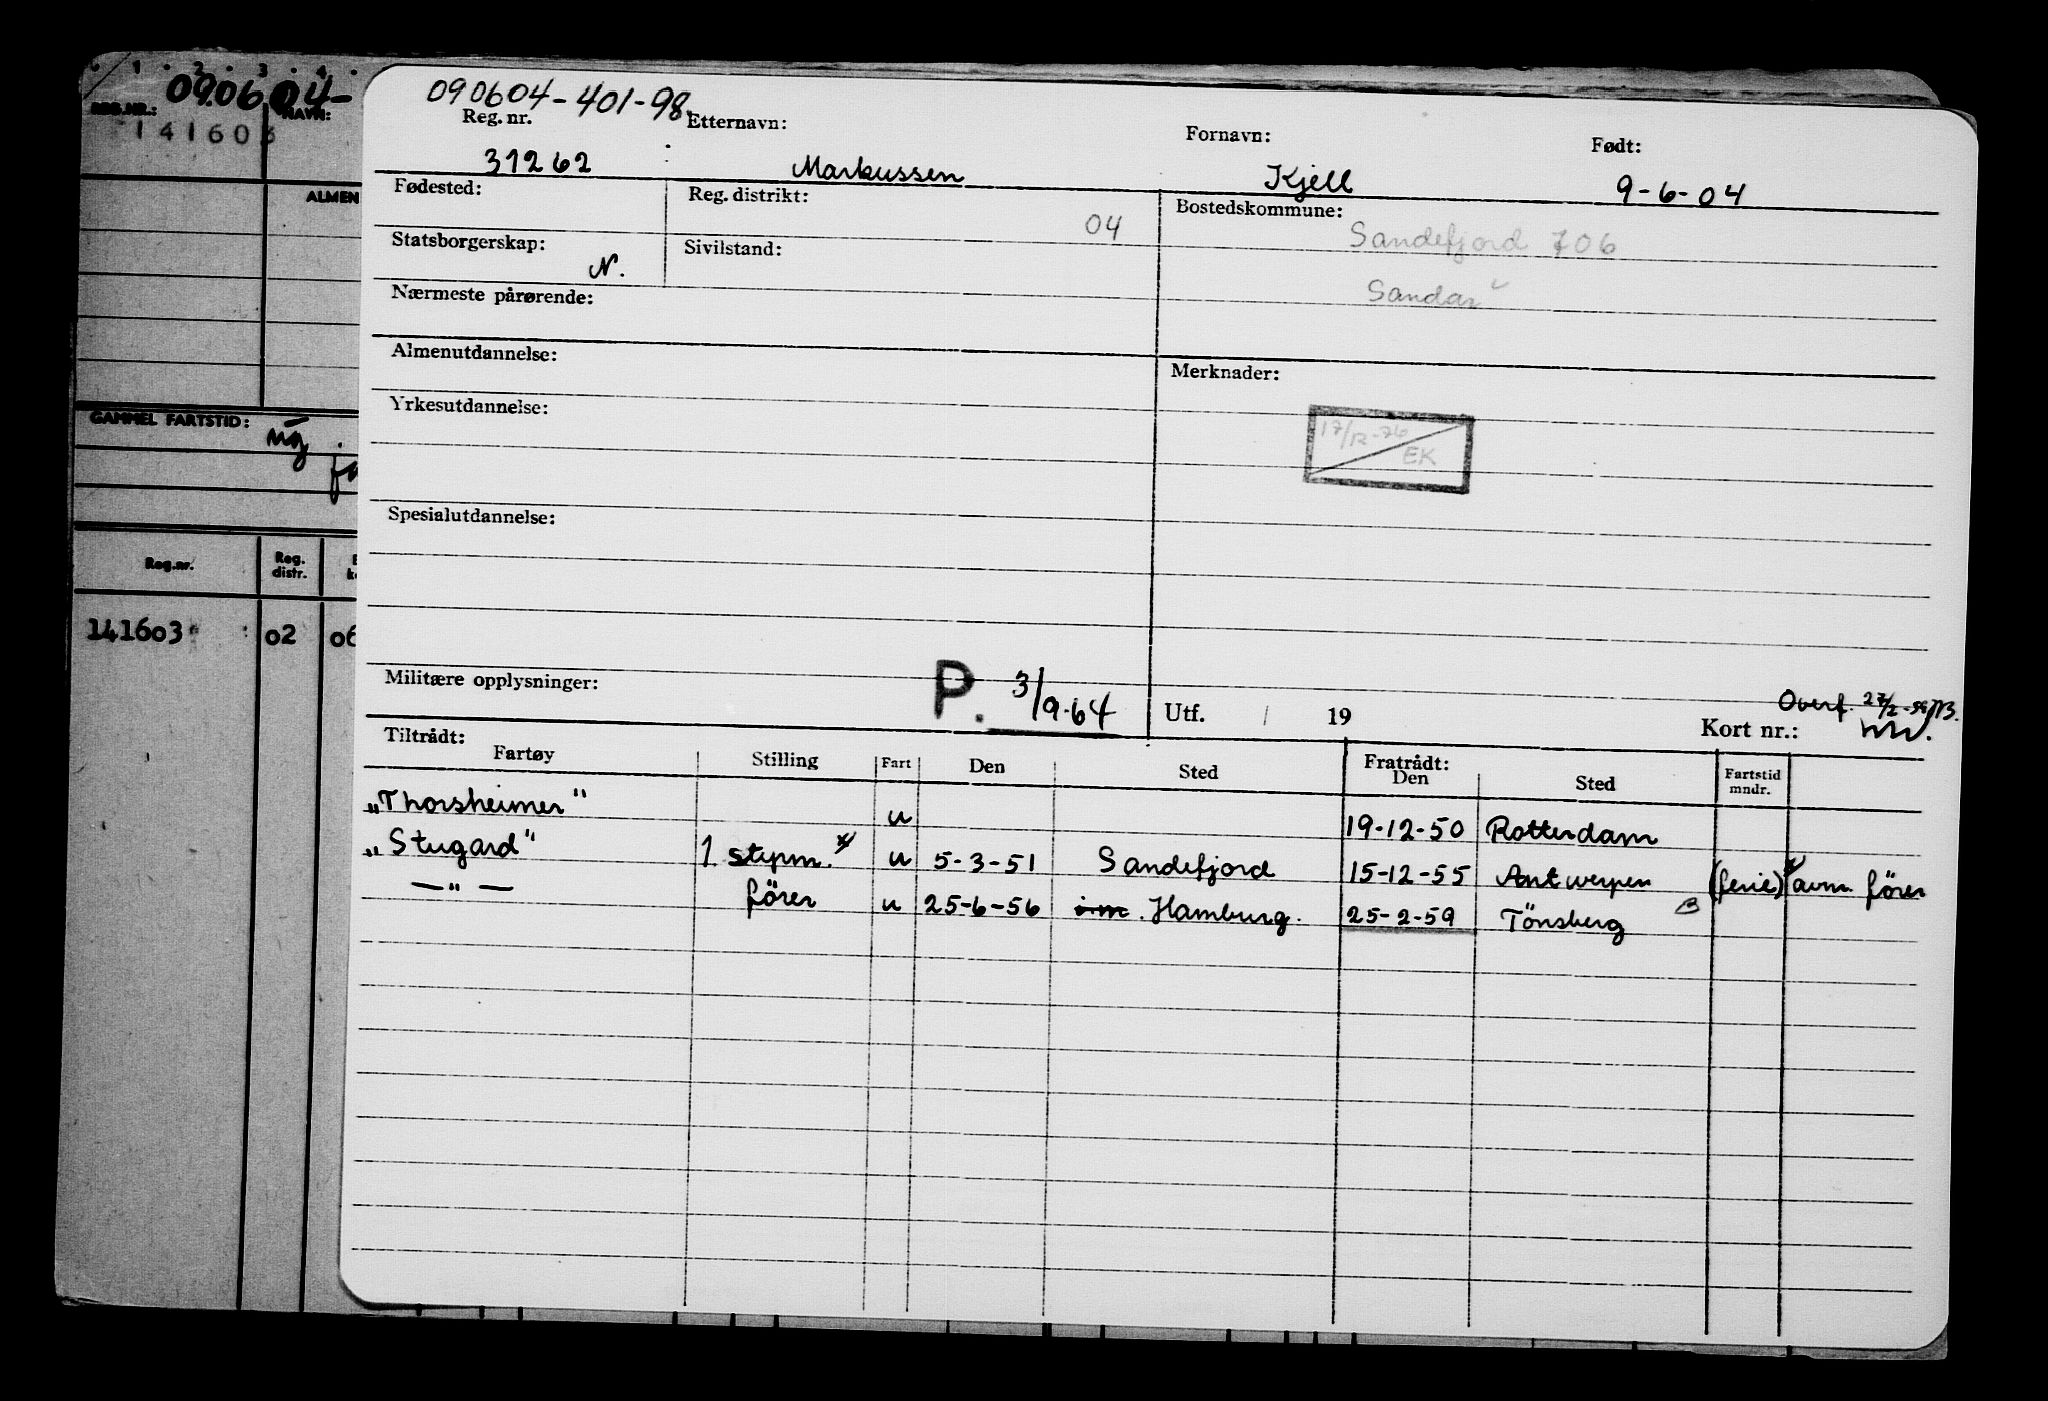 0 1 2 3 4
REG.NR.: 090604- NAVN:
141603
ALMEN
GAMMEL FARTSTID:
Reg.nr. Reg. distr.
141603 02 06
090604-401-98.
Reg. nr. Etternavn: Fornavn: Født:
31262 Markussen Kjell 9-6-04
Fødested: Reg. distrikt: 04 Bostedskommune:
Sandefjord 706
Statsborgerskap: N. Sivilstand:
Sandar
Nærmeste pårørende:
Almenutdannelse: Merknader:
Yrkesutdannelse:
17/12-76 EK
Spesialutdannelse:
Militære opplysninger: P. 3/9-64 Utf. / 19 Kort nr.:
Overf. 27/2-
Tiltrådt: Fratrådt:
Fartøy Stilling Fart Den Sted Den Sted Fartstid mndr.
"Thorsheimer" u 19-12-50 Rotterdam
"Stugard" 1 styrm. x/ u 5-3-51 Sandefjord 15-12-55 Antwerpen (ferie) x/ avm. fører
—"— fører u 25-6-56 Hamburg. 25-2-59 Tönsberg B